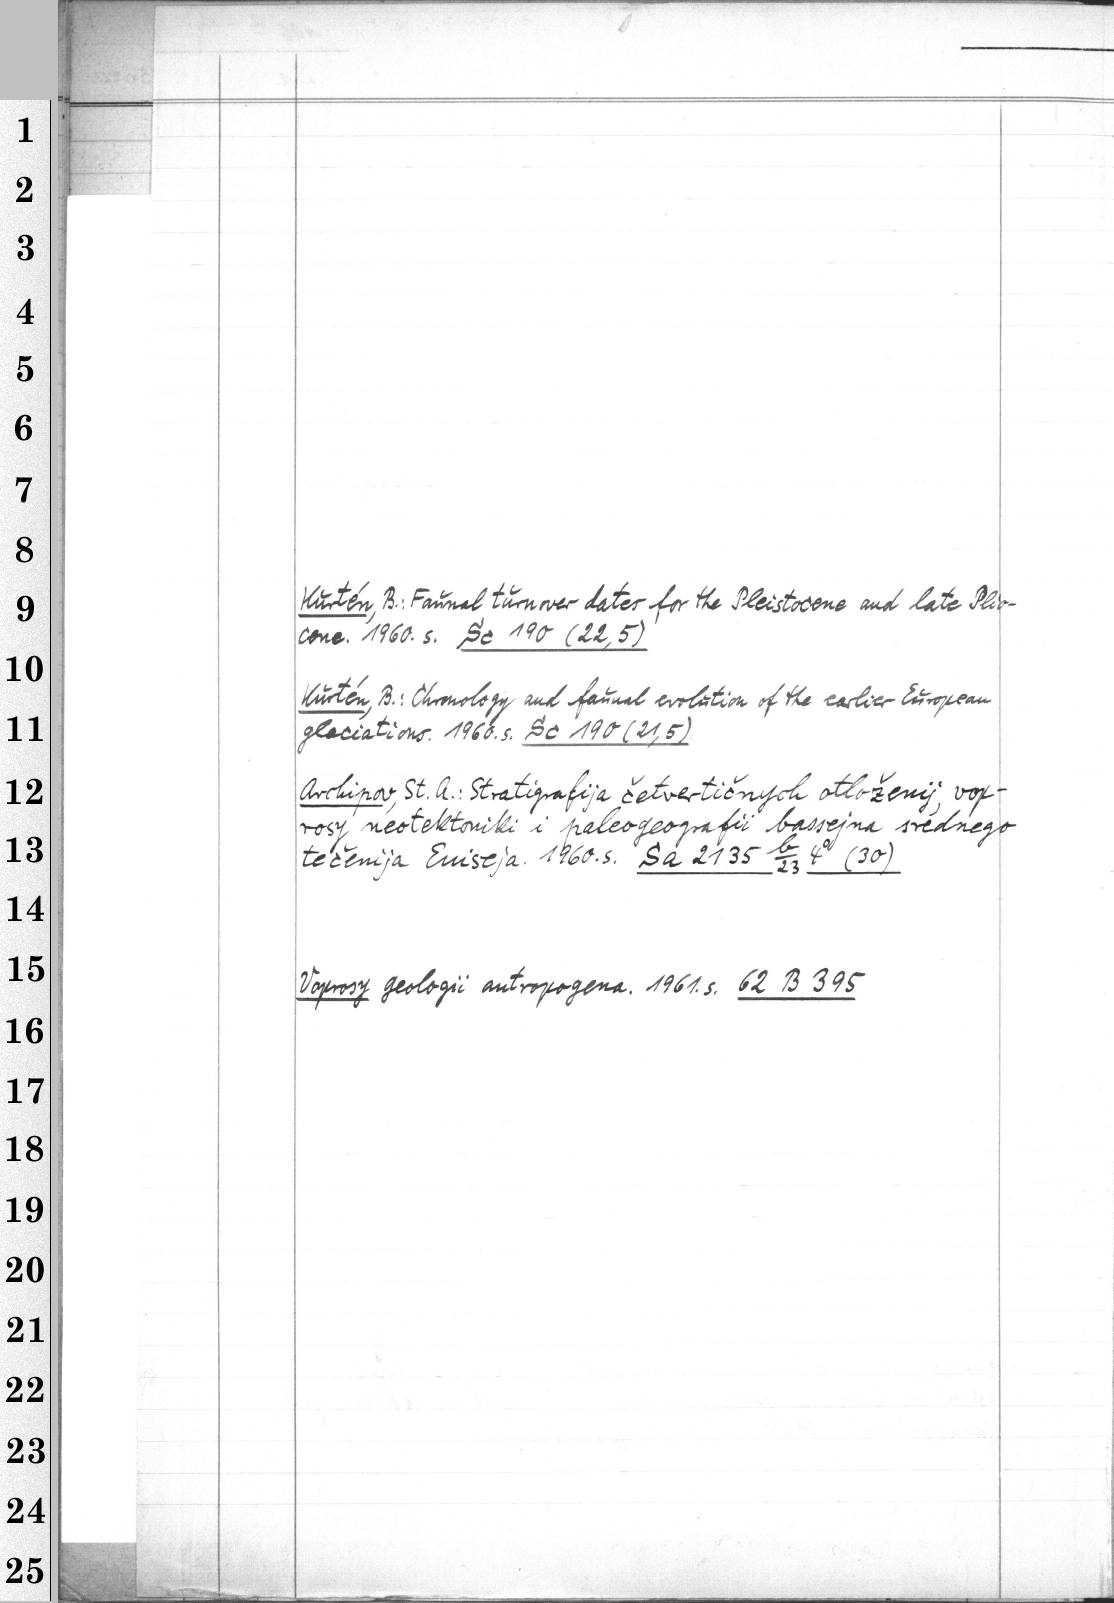 1
2
3
4
5
6
7
8
9
10
11
12
13
14
15
16
17
18
19
20
21
22
23
24
25
Kurtén, B.: Faunal turnover dates for the Pleistocene and late Plio-
cene. 1960. s. Sc 190 (22,5)
Kurtén, B.: Chronology and faunal evolution of the earlier European
glaciations. 1960. s. Sc 190 (21,5)
Archipov, St. A.: Stratigrafija četvertičnych otloženij, vop-
rosy neotektoniki i paleogeografii bassejna srednego
tečenija Eniseja. 1960. s. Sa 2135 b/23 4° (30)
Voprosy geologii antropogena. 1961. s. 62 B 395